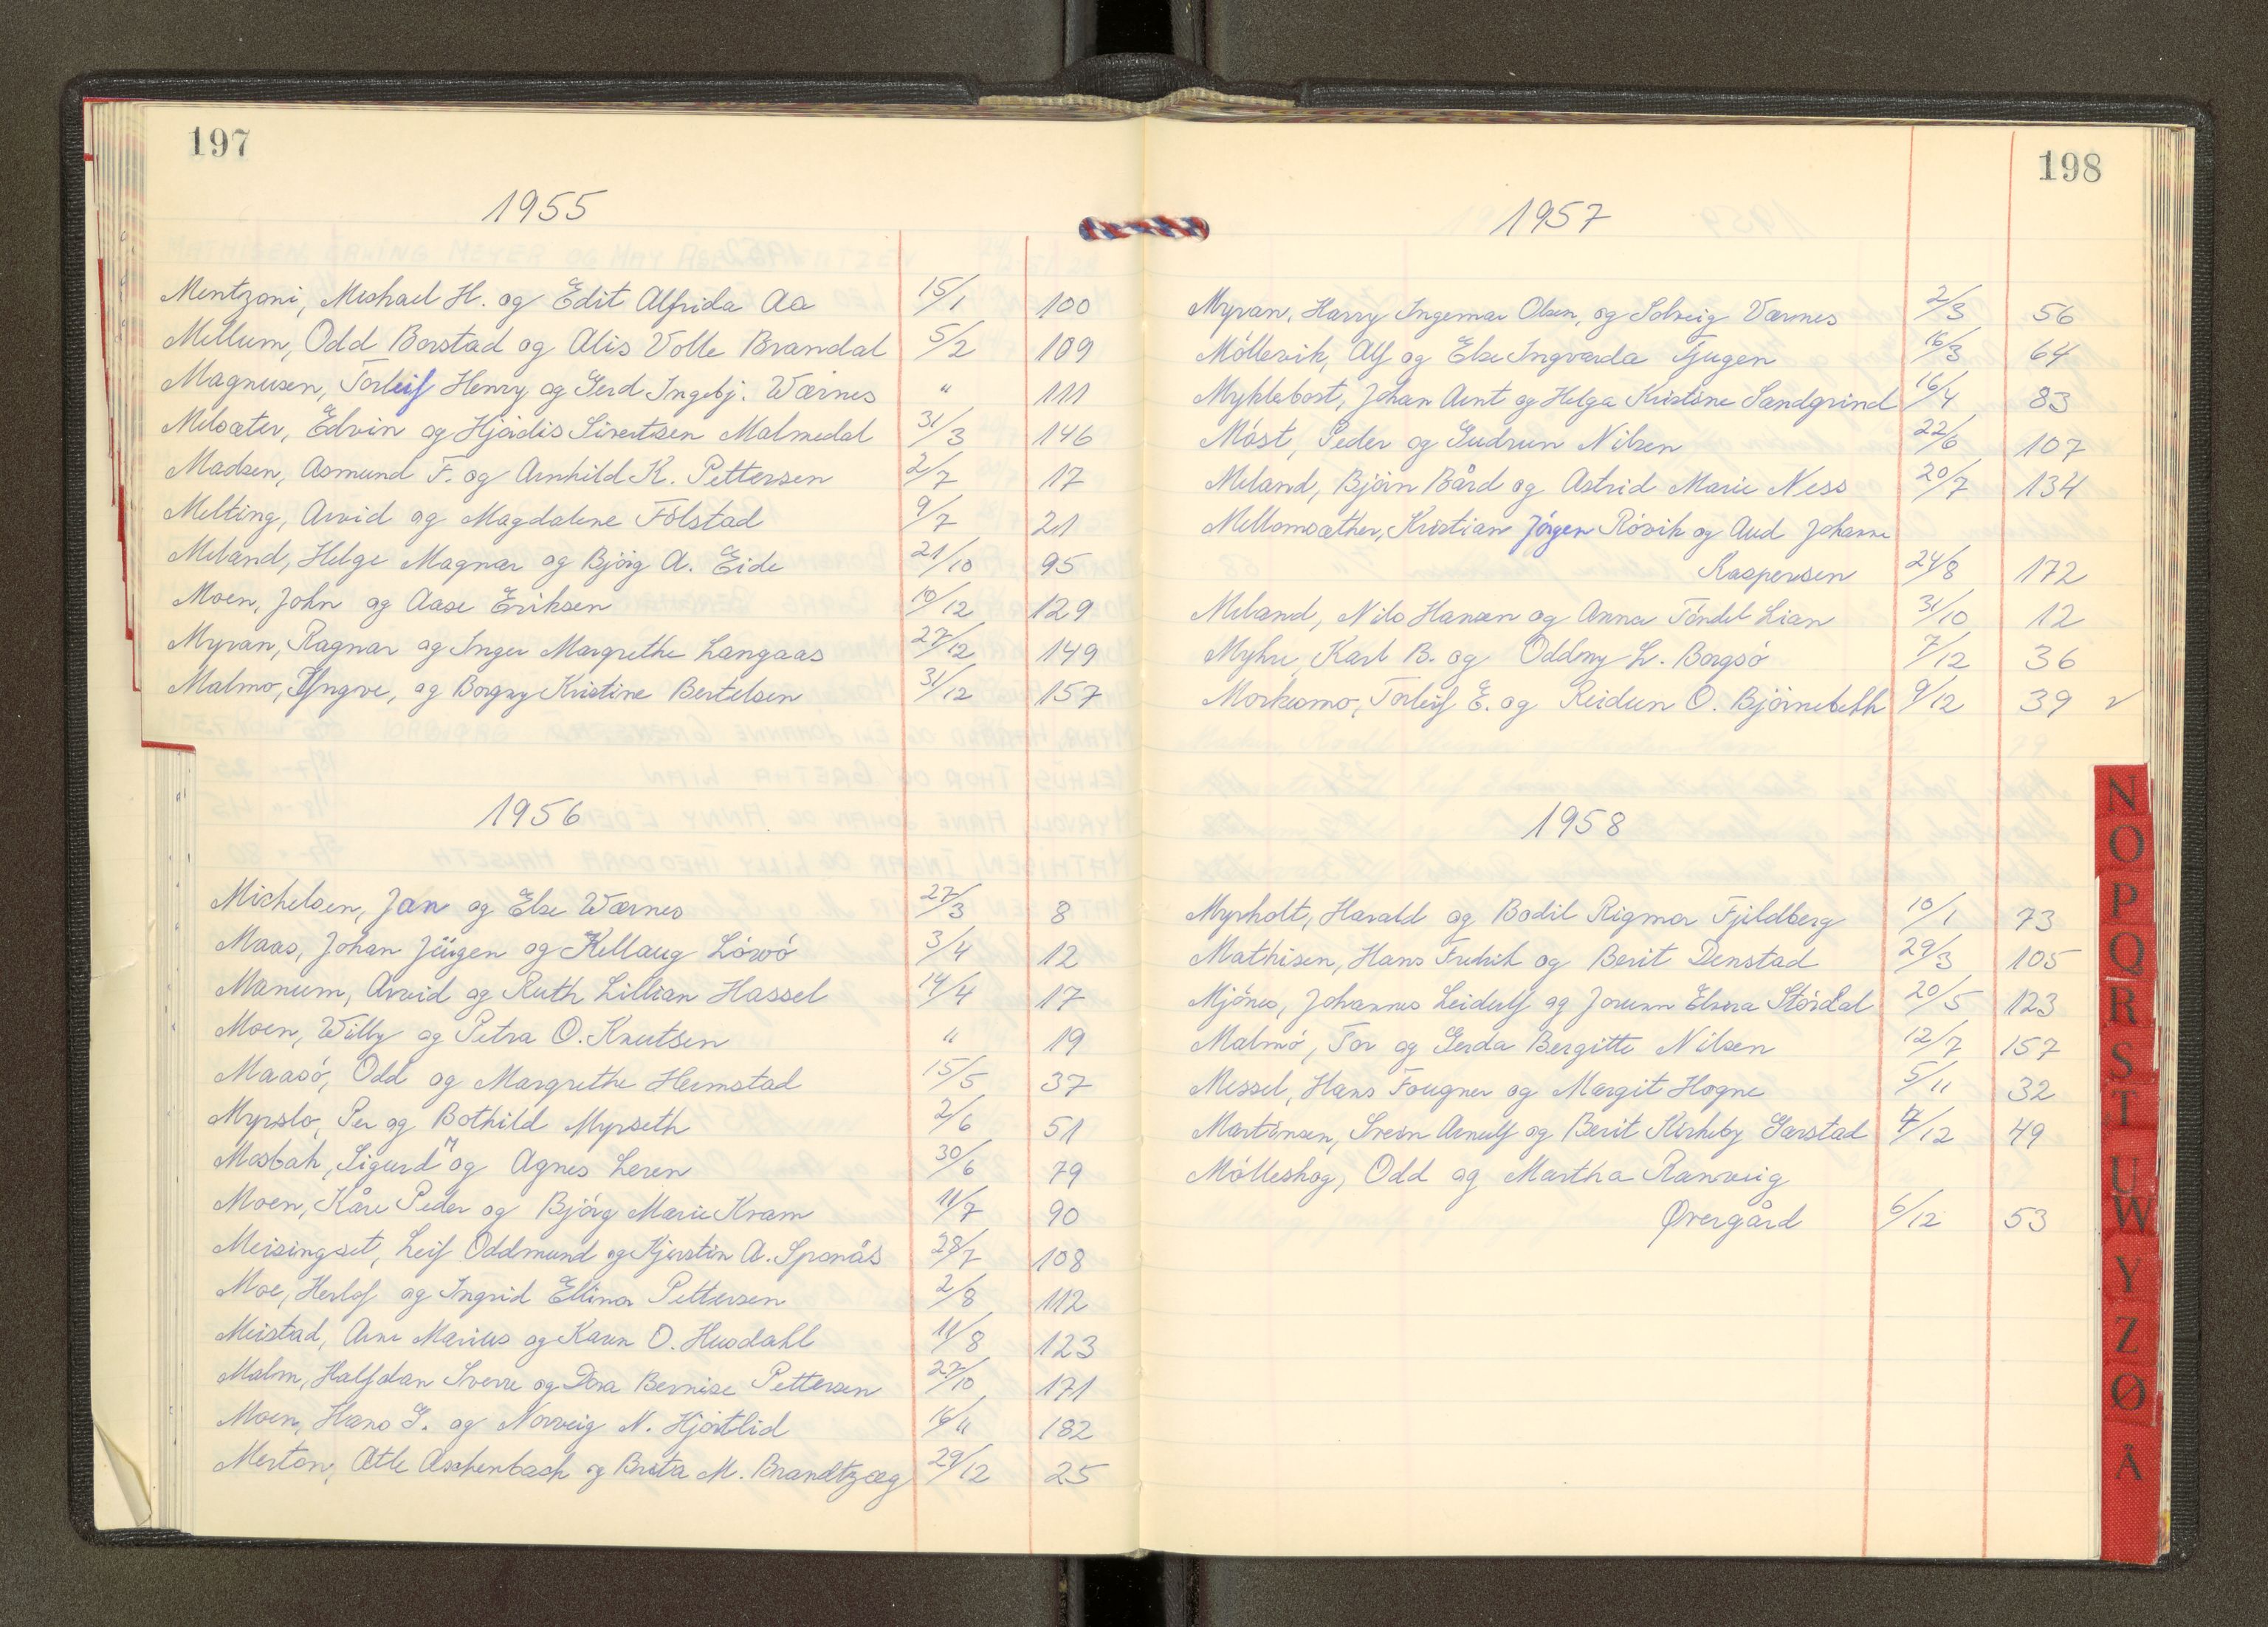 197
1955
Mentzoni, Michael H. og Edit Alfrida Aa 15/1 100
Mellum, Odd Borstad og Alis Volle Brandal 5/2 109
Magnusen, Torleif Henry og Gerd Ingebj. Wærnes " 111
Melsæter, Edvin og Hjördis Sivertsen Malmedal 31/3 146
Madsen, Asmund F. og Arnhild K. Pettersen 2/7 17
Melting, Arvid og Magdalene Fölstad 9/7 21
Meland, Helge Magnar og Björg A. Eide 21/10 95
Moen, John og Aase Eriksen 10/12 129
Myran, Ragnar og Inger Margrethe Langaas 27/12 149
Malmo, Yngve, og Borgny Kristine Bertelsen 31/12 157
1956
Michelsen, Jan og Else Wærnes 27/3 8
Maas, Johan Jürgen og Kellaug Lövö 3/4 12
Manum, Arvid og Ruth Lillian Hassel 14/4 17
Moen, Willy og Petra O. Knutsen " 19
Maasö, Odd og Margrethe Hermstad 15/5 37
Myrslo, Per og Bothild Myrseth 2/6 51
Mosbak, Sigurd M og Agnes Leren 30/6 79
Moen, Kåre Peder og Björg Marie Kram 11/7 90
Meisingset, Leif Oddmund og Kjerstin A. Sponås 28/7 108
Moe, Herlof og Ingrid Ellinor Pettersen 2/8 112
Meistad, Arne Marius og Karen O. Husdahl 11/8 123
Malm, Halfdan Sverre og Dora Bernise Pettersen 27/10 171
Moen, Hans G. og Norveig N. Hjörtlid 16/11 182
Merton, Atle Aschenbach og Brita M. Brandtzæg 29/12 25
198
1957
Myran, Harry Ingemar Olsen, og Solveig Værnes 2/3 56
Möllevik, Alf og Else Ingvarda Tjugen 16/3 64
Myklebost, Johan Arnt og Helga Kristine Sandgrind 16/4 83
Möst, Peder og Gudrun Nilsen 22/6 107
Meland, Björn Bård og Astrid Marie Ness 20/7 134
Mellomsæther, Kristian Jörgen Rövik og Aud Johanne
Kaspersen 24/8 172
Meland, Nils Hansen og Anna Töndel Lian 31/10 12
Myhre, Karl B. og Oddny L. Borgsö 7/12 36
Morkusmo, Torleif E. og Reidun O. Björnebekk 9/12 39 v
1958
Myrholt, Harald og Bodil Rigmor Fjeldberg 10/1 73
Mathisen, Hans Fredrik og Berit Denstad 29/3 105
Mjönes, Johannes Leidulf og Jorunn Elvira Stördal 20/5 123
Malmö, Tor og Gerda Bergitte Nilsen 12/7 157
Messel, Hans Fougner og Margit Hogne 5/11 32
Martinsen, Svein Arnulf og Berit Kirkeby Garstad 7/12 49
Mölleskog, Odd og Martha Ranveig
Øvergård 6/12 53
N
O
P
Q
R
S
T
U
W
Y
Z
Ø
Å